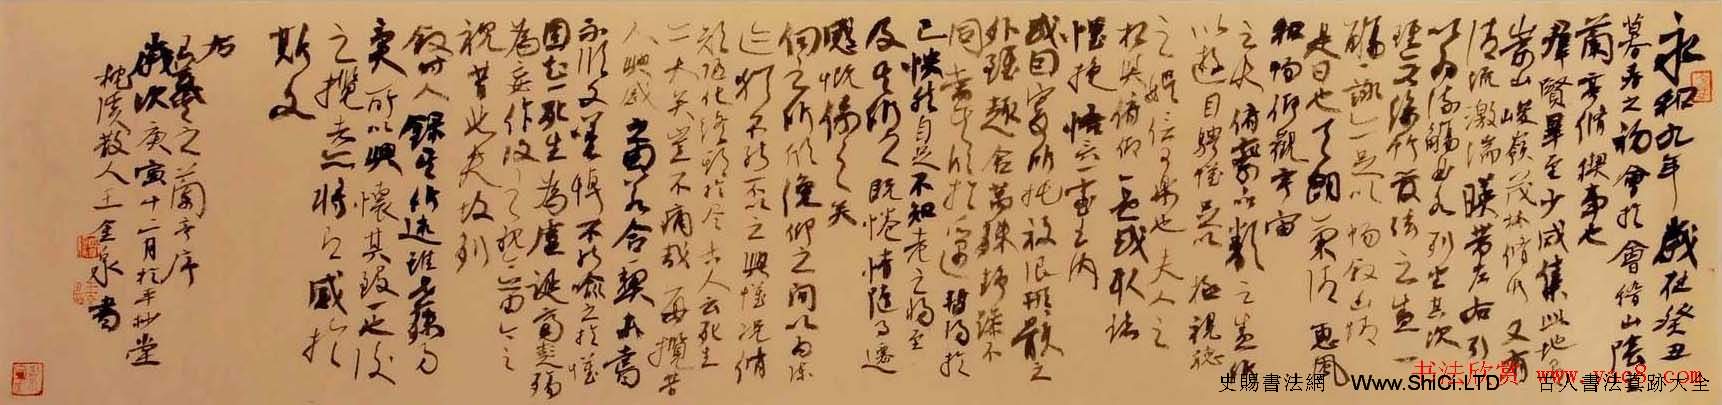 永和九年歲在癸丑
暮春之初會於會稽山陰
蘭亭脩禊事也
羣賢畢至少長咸集此地
崇山峻嶺茂林脩竹又有
清流激湍暎帶左右引
以為流觴曲水列坐其次
雖無絲竹管絃之盛一
觴一詠亦足以暢敘幽情
是日也天朗氣清惠風
和暢仰觀宇宙
之大俯察品類之盛所
以遊目騁懷足以極視聽
之娛信可樂也夫人之
相與俯仰一世或取諸
懷抱悟言一室之內
或因寄所託放浪形骸之
外雖趣舍萬殊靜躁不
同當其欣於所遇暫得於
己怏然自足不知老之將至
及其所之既惓情隨事遷
感慨係之矣
向之所欣俛仰之間以為陳
迹猶不能不以之興懷況脩
短隨化終期於盡古人云死生
亦大矣豈不痛哉每攬昔
人興感之由若合一契未嘗
不臨文嗟悼不能喻之於懷
固知一死生為虛誕齊彭殤
為妄作後之視今亦由今之
視昔悲夫故列
敘時人錄其所述雖世殊事
異所以興懷其致一也後
之攬者亦將有感於
斯文
右
王羲之蘭亭序
歲次庚寅十二月於平抄堂
散人王金泉書
书法欣赏 www.yac8.com
史賜書法網 Www.ShiCi.LTD 古人書法真跡大全